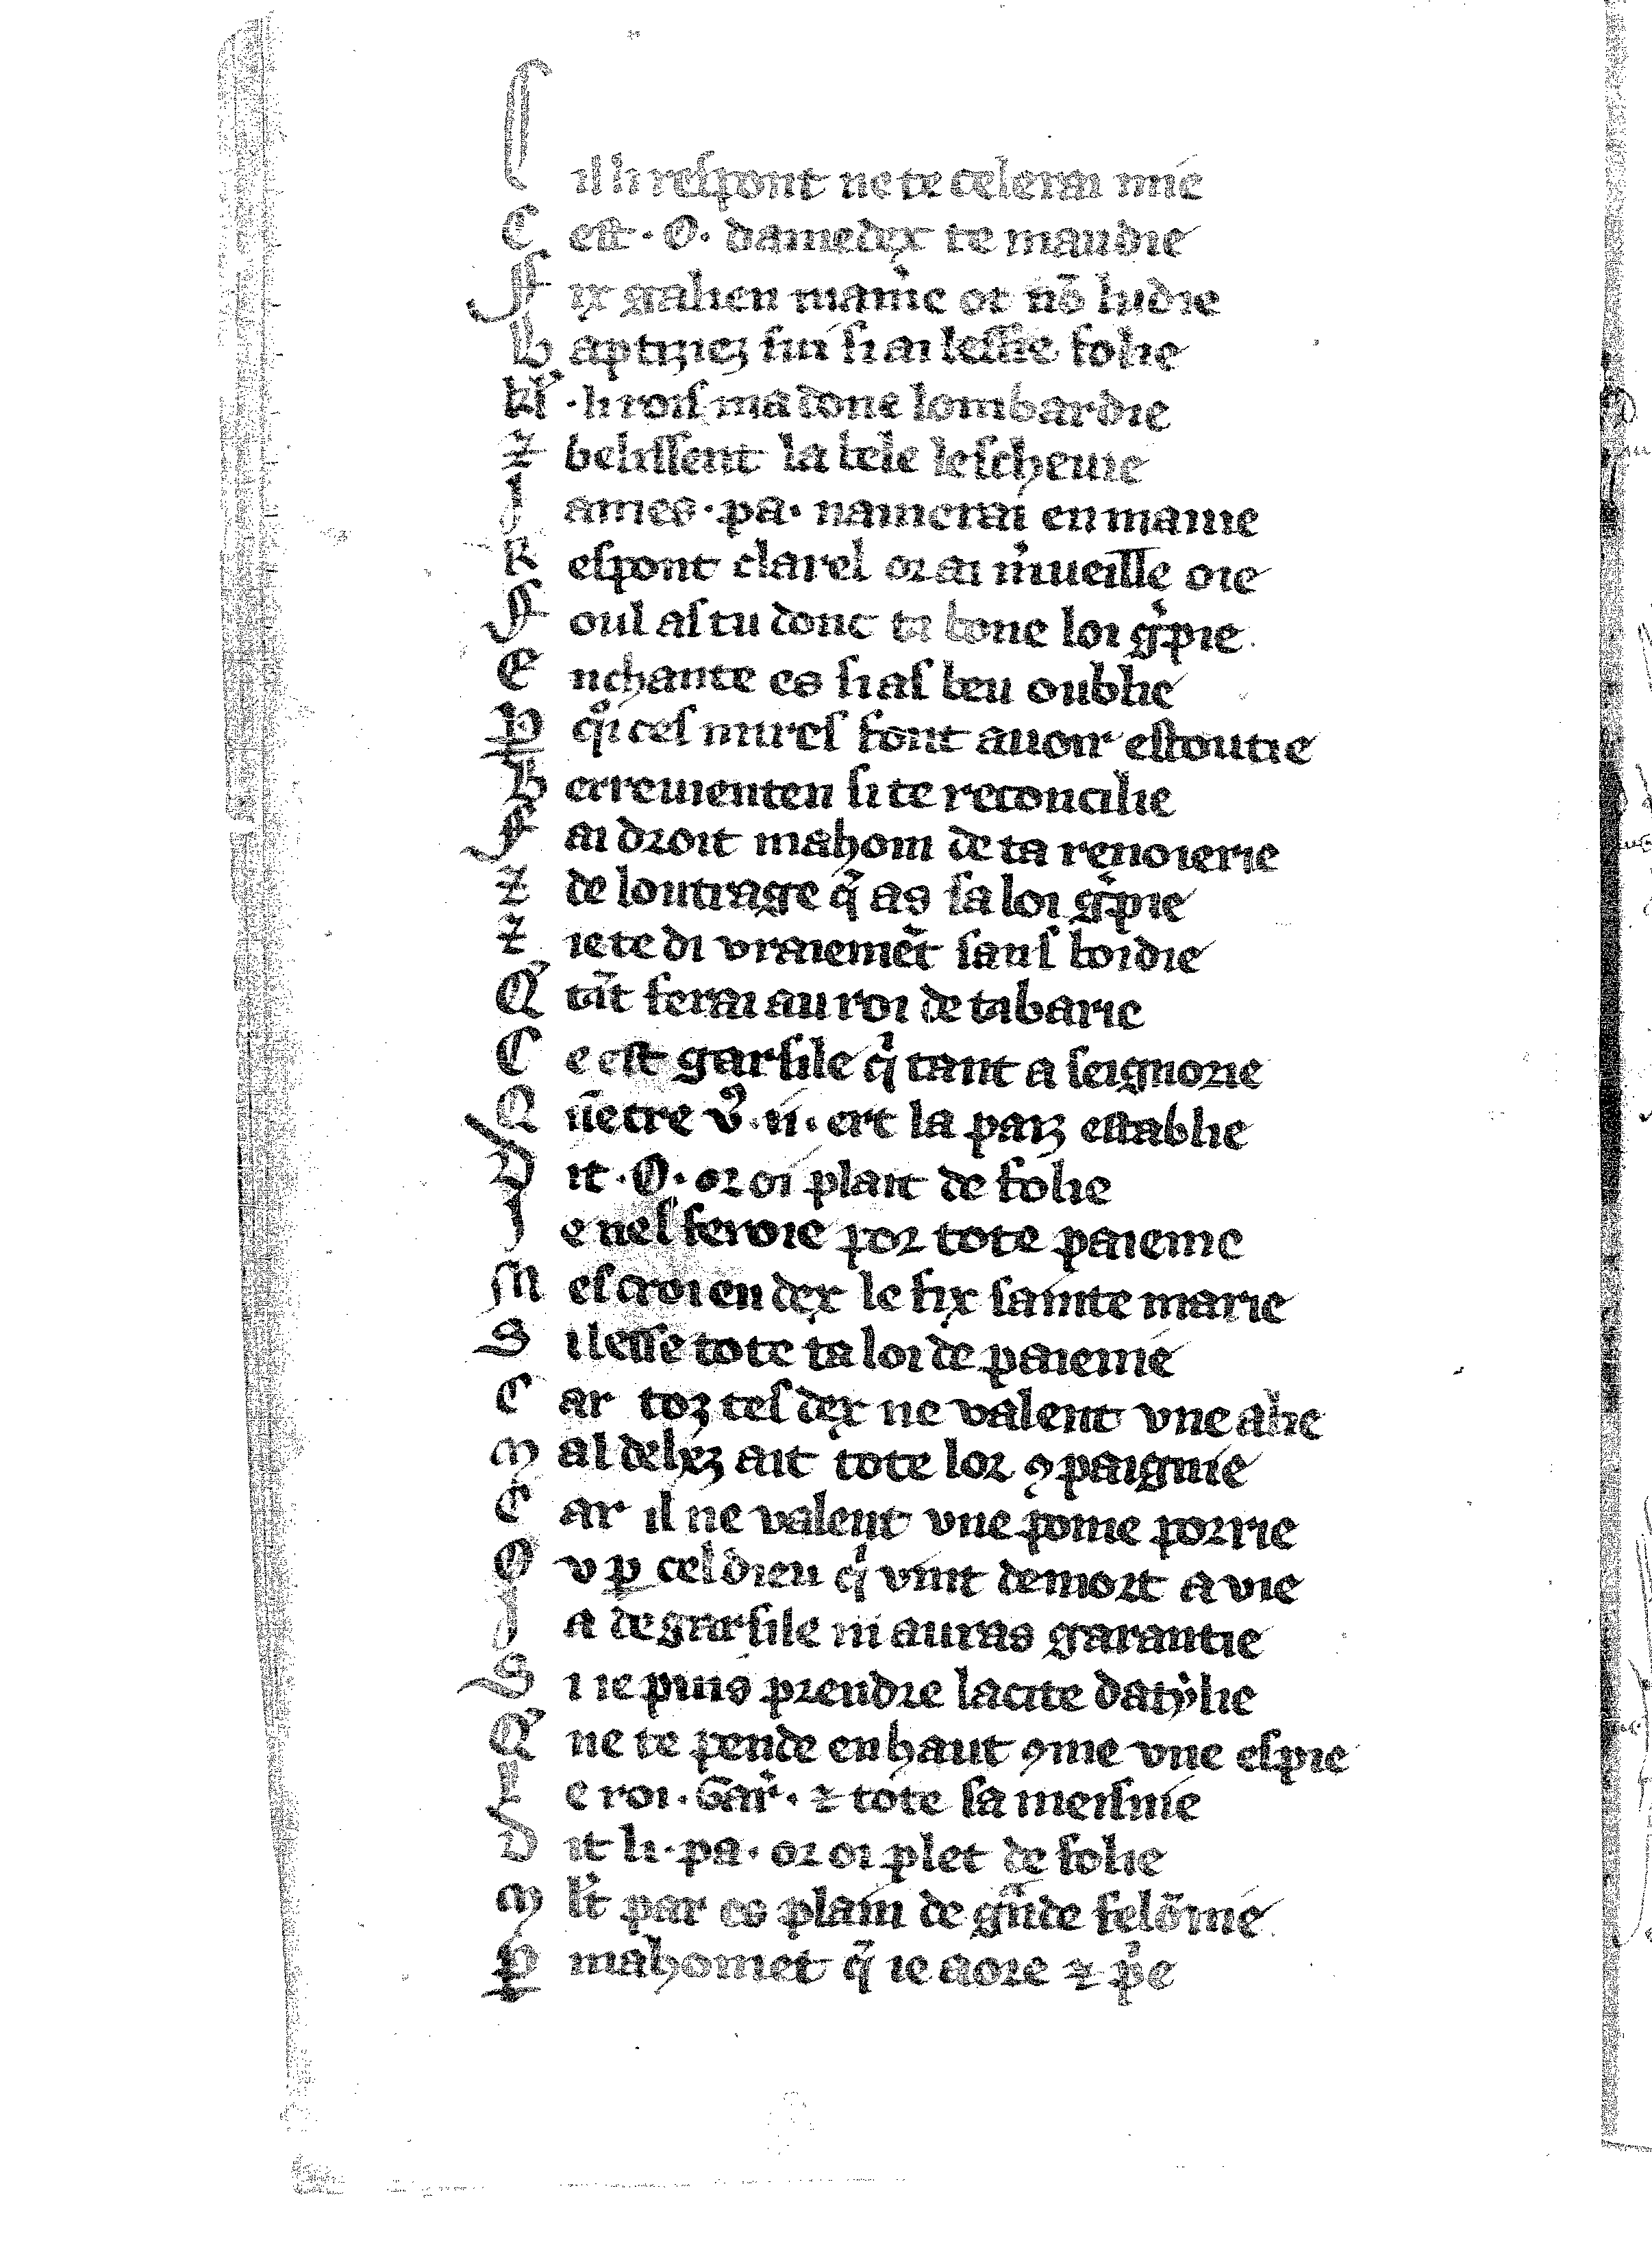 l il li reſpont ne te celerai mie
C eſt · O · damedex te maudie
F ix galien mam̾e ot nō ludie
B aptiziez ſui ſi ai leſſie folie
kl̾ · li roiſ ma done lombardie
⁊ beliſſent la bele leſchevie
J ames · pa · namerai en mauie
R eſpont clarel or ai m̾ueille oie
F oul aſ tu donc ta bone loi g̾pie
E nchante es ſi aſ beu oublie
P qͥ ceſ mireſ font auoir eſtoutie
B er reuienten ſi te reconcilie
F ai droit mahom de ta renoierie
⁊ de loutrage q̃ as ſa loi g̾pie
⁊ ie te di vraiemēt ſanſ boidie
Q̾ tāt ferai au roi de tabarie
C e eſt garſile qͥ tant a ſeignorie
Q ūetre v̾ · ii · ert la paiz eſtablie
D it · O · or oi plait de folie
J e neſ feroie por tote paiemie
M eſ croi en dex le fix ſainte marie
S i leſſe tote ta loi de paiemie
C ar toz teſ dex ne valent vne alie
M al dehez ait tote lor ꝯpaignie
C ar il ne valent vne pome porrie
O v ꝑ cel dieu qͥ vint de mort a vie
J a de garſile ni auras garantie
S i ie puis prendre la cite datylie
Q̾ ne te pende en haut ꝯme vne eſpie
L e roi · Gar̾ · ⁊ tote ſa meiſnie
D it li · pa · or oi plet de folie
M lt̾ par es plain de gͣnde felōmie
P mahomet q̃ ie aore ⁊ p̾e